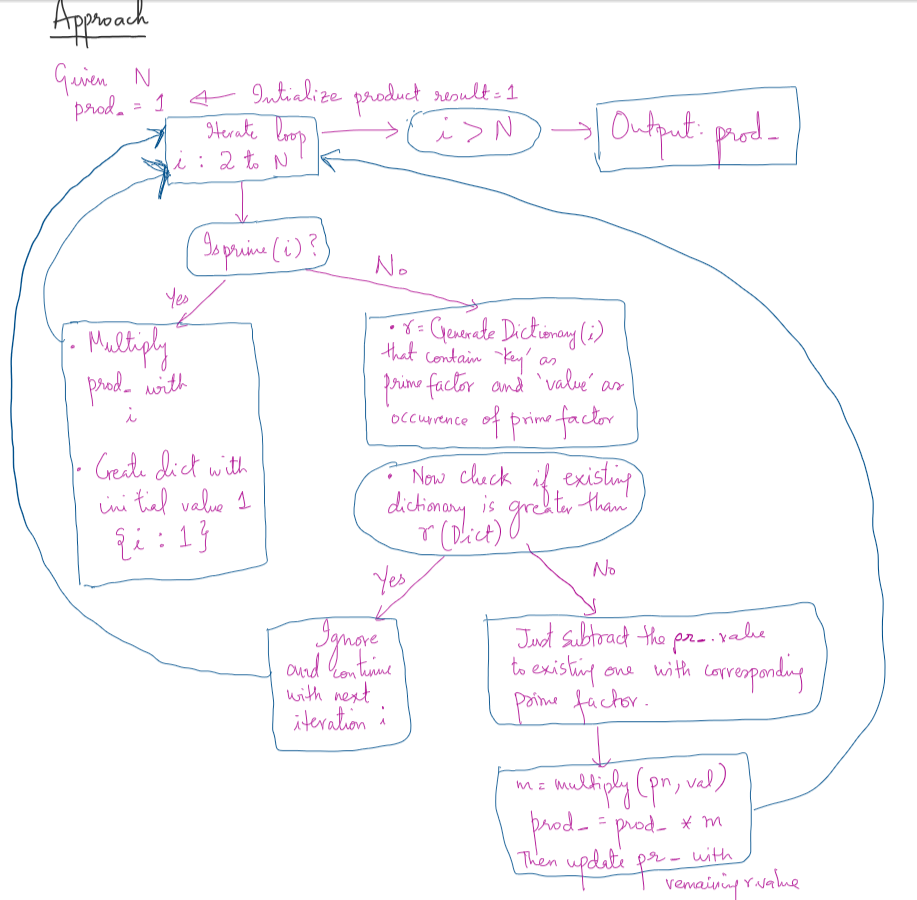 Approach
Given N
prod_ = 1 ← Intialize product result = 1
Iterate loop
i : 2 to N
i > N
Output: prod_
Isprime (i) ?
Yes
No
• Multiply
prod_ with
i
• Create dict with
initial value 1
{i : 1}
• r = Generate Dictionary (i)
that contain 'key' as
prime factor and 'value' as
occurrence of prime factor
• Now check if existing
dictionary is greater than
r (Dict)
Yes
No
Ignore
and continue
with next
iteration i
Just subtract the pr_. value
to existing one with corresponding
prime factor.
m = multiply (pn, val)
prod_ = prod_ * m
Then update pr_ with
remaining r value